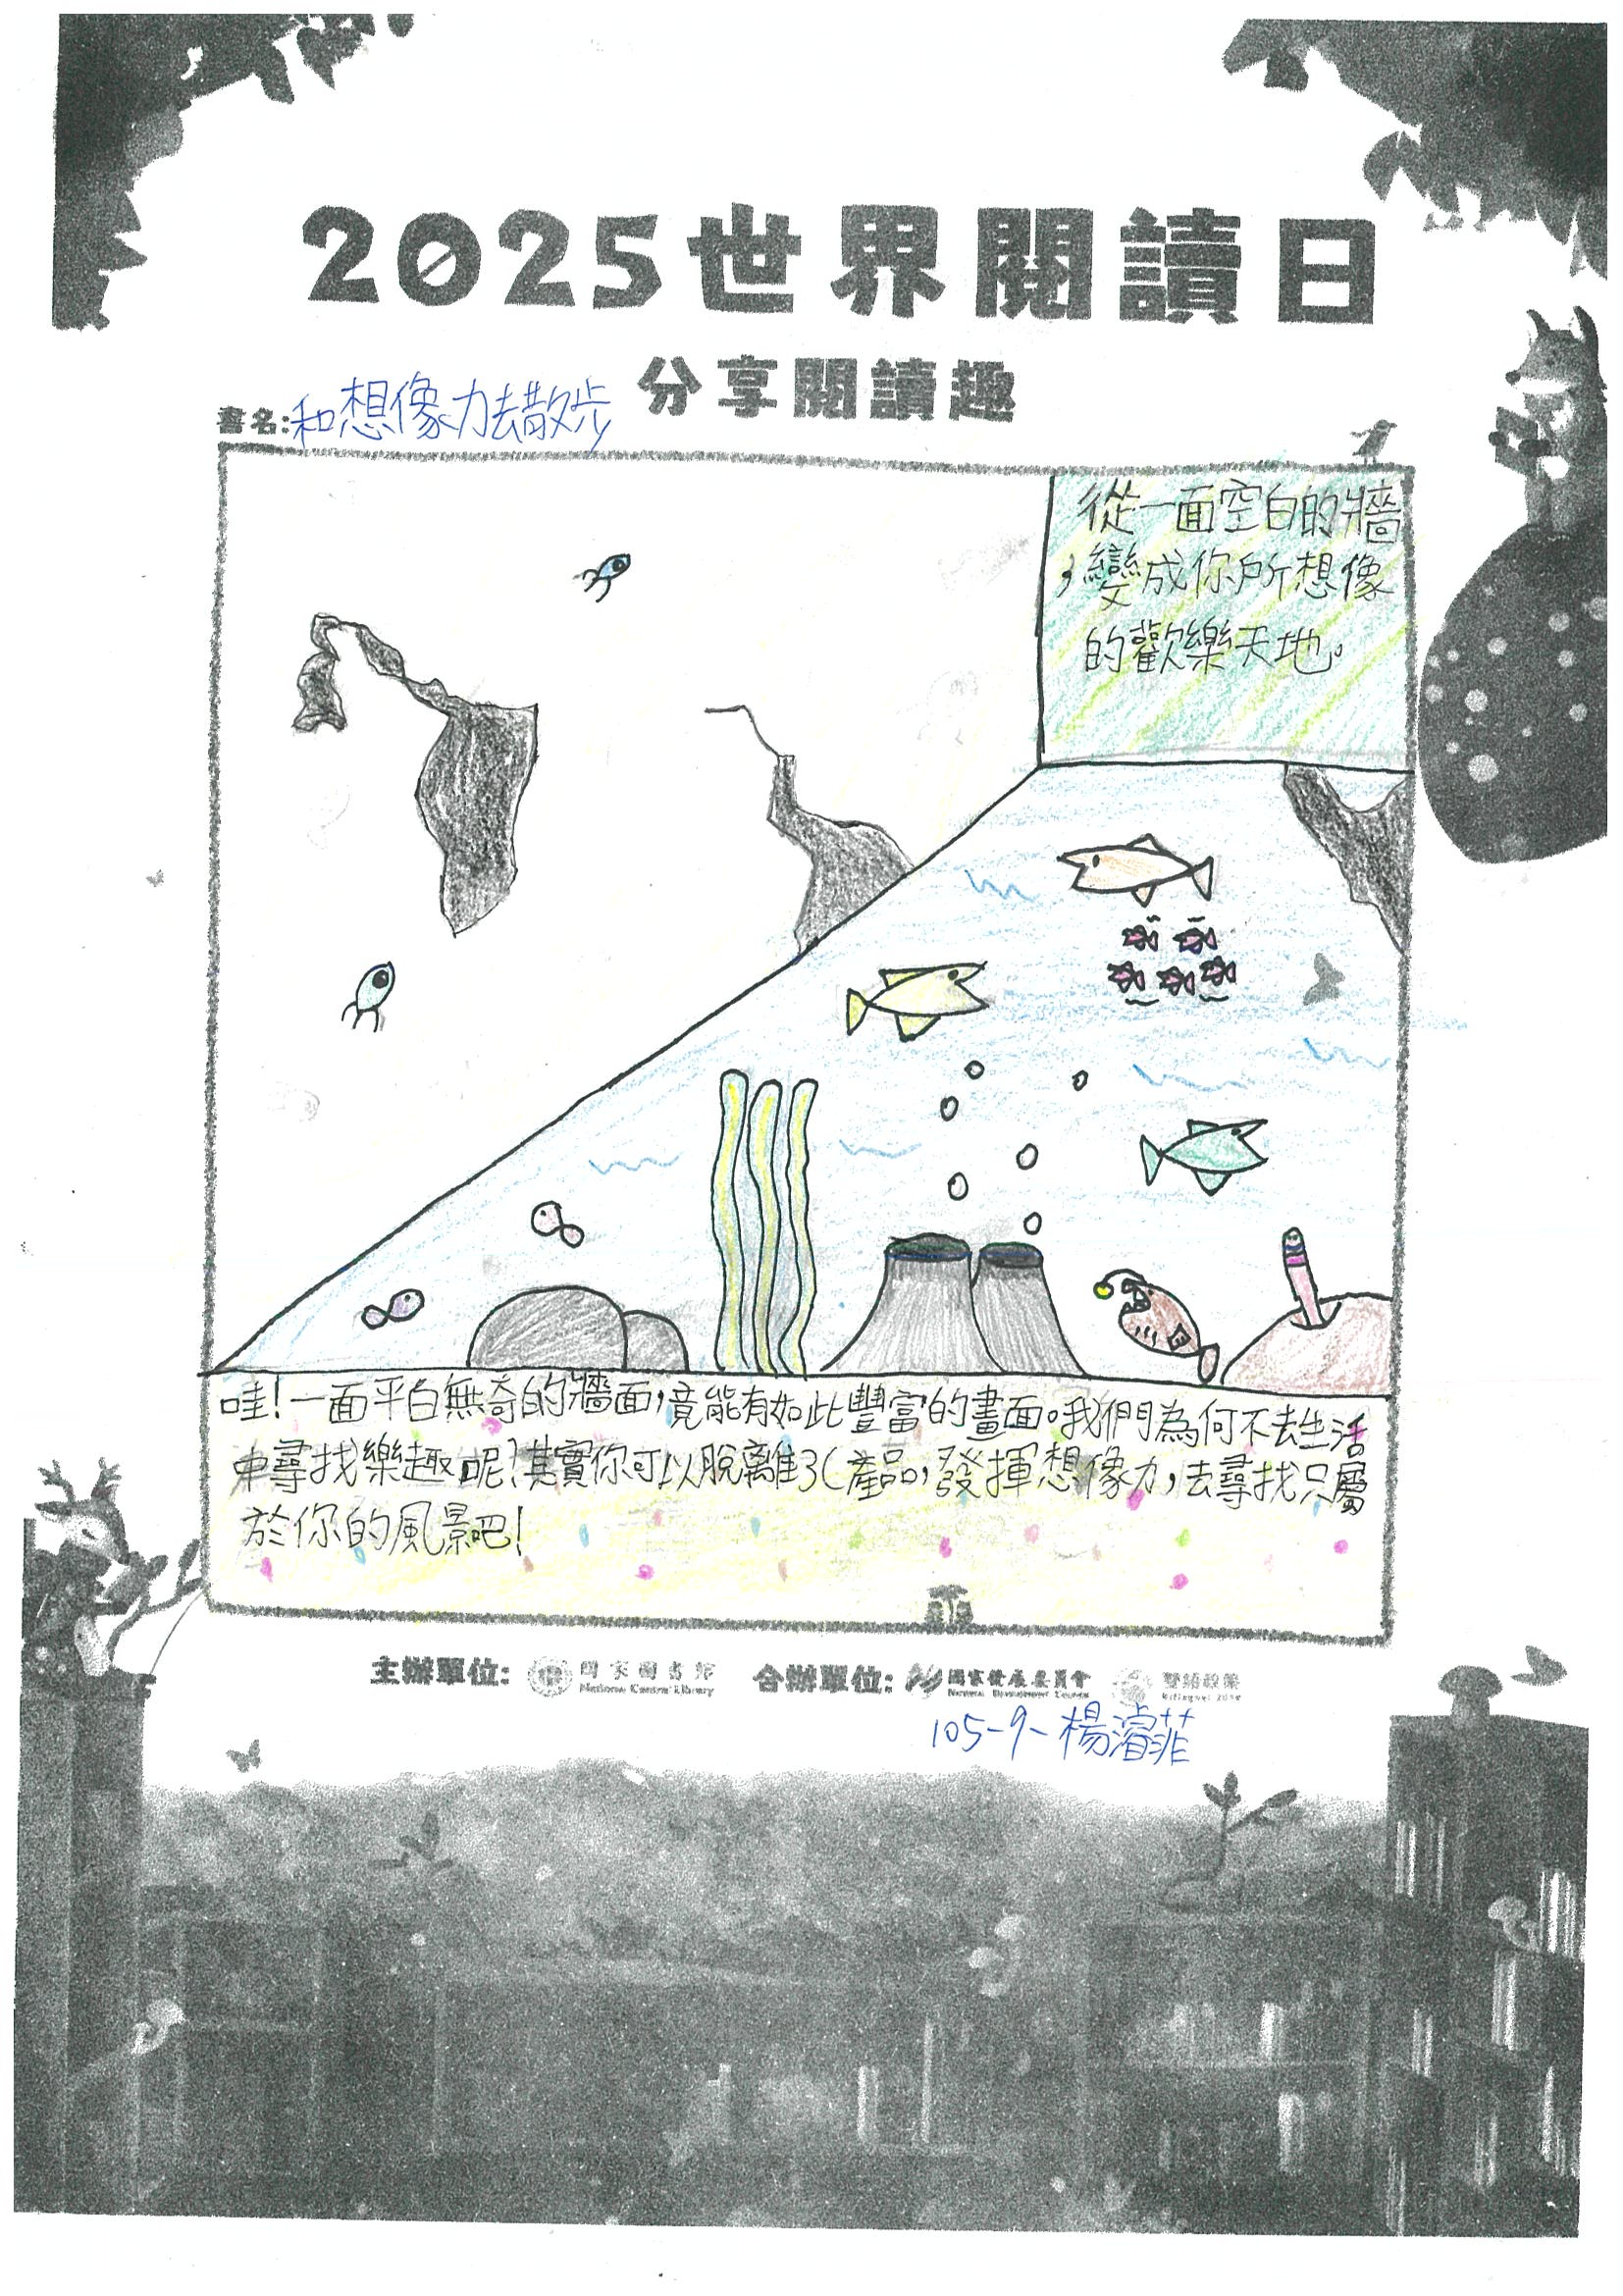 2025世界閱讀日
分享閱讀趣
書名:和想像力去散步
從一面空白的牆
,變成你所想像
的歡樂天地。
哇!一面平白無奇的牆面,竟能有如此豐富的畫面。我們為何不去生活
中尋找樂趣呢?其實你可以脫離3C產品,發揮想像力,去尋找只屬
於你的風景吧!
主辦單位: 國家圖書館 合辦單位: 國家發展委員會 雙語政策
National Central Library National Development Council Bilingual 2030
105-9-楊濬菲